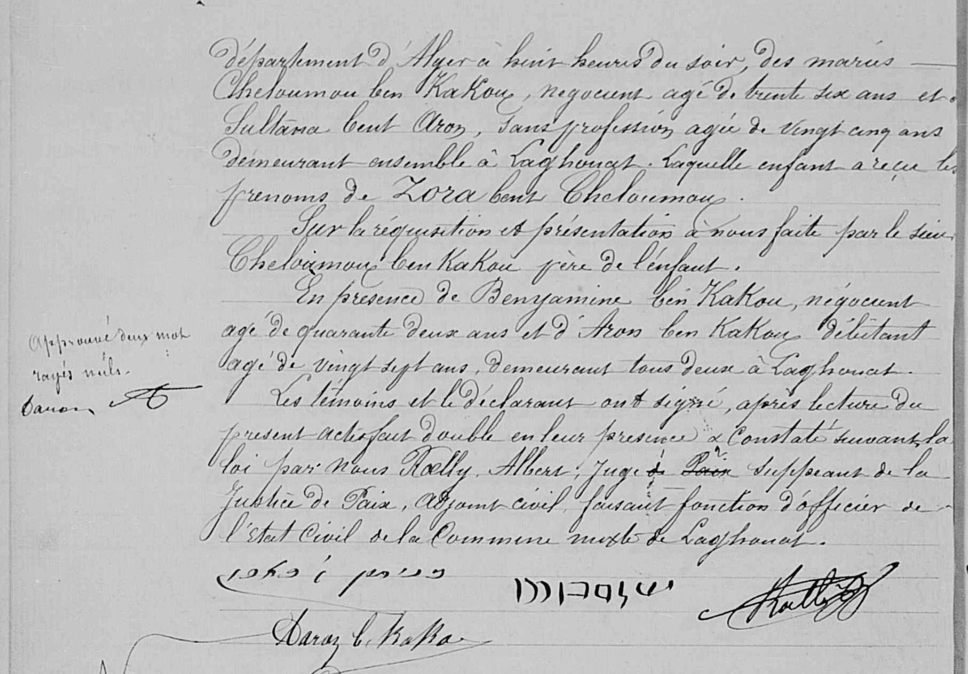 département d'Alger à huit heures du soir, des mariés
Cheloumou ben Kakou, négociant agé de trente six ans et
Sultana bent Aron, sans profession, agée de vingt cinq ans
demeurant ensemble à Laghouat. Laquelle enfant a reçu les
prenoms de Zora bent Cheloumou.
Sur la réquisition et présentation à nous faite par le sieur
Cheloumou ben Kakou père de l'enfant.
En présence de Benyamine ben Kakou, négociant
agé de quarante deux ans et d'Aron ben Kakou débitant
agé de vingt sept ans, demeurant tous deux à Laghouat.
Les témoins et le déclarant ont signé, après lecture du
présent acte fait double en leur présence & constaté suivant la
loi par Nous Rœlly Albert, Juge de Paix suppéant de la
Justice de Paix, adjoint civil, faisant fonction d'officier de
l'Etat Civil de la Commune mixte de Laghouat.
Approuvé deux mot
rayés nuls.
Daron b. Kako